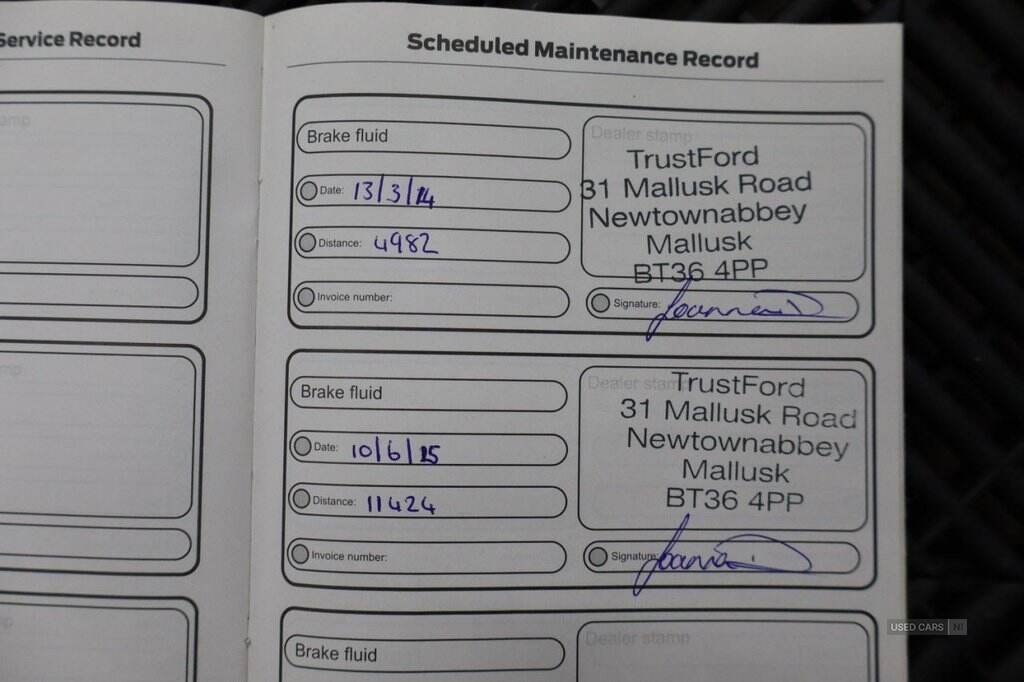 Service Record
Scheduled Maintenance Record
Brake fluid
Date: 13/3/14
Distance: 4982
Invoice number:
Dealer stamp
TrustFord
31 Mallusk Road
Newtownabbey
Mallusk
BT36 4PP
Signature:
Brake fluid
Date: 10/6/15
Distance: 11424
Invoice number:
Dealer stamp
TrustFord
31 Mallusk Road
Newtownabbey
Mallusk
BT36 4PP
Signature:
Brake fluid
Dealer stamp
USED CARS NI